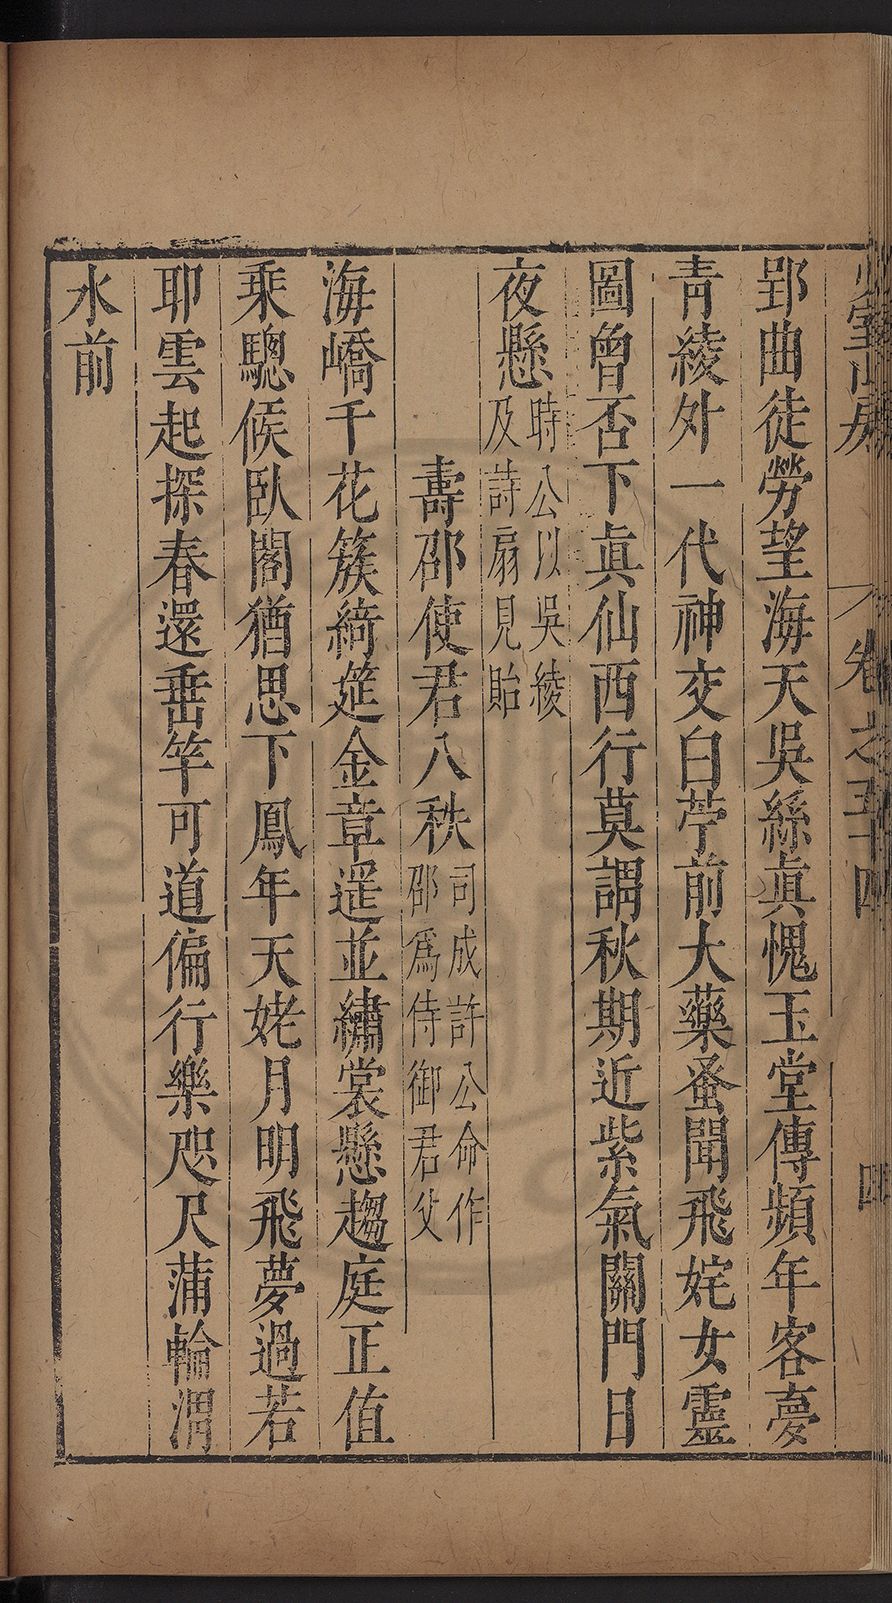 少室山房
卷之五十四
四
郢曲徒勞望海天吳絲真愧玉堂傳頻年客夢
青綾外一代神交白苧前大藥蚤聞飛姹女靈
圖曾否下真仙西行莫謂秋期近紫氣關門日
夜懸時公以吳綾
及詩扇見貽
壽邵使君八秩司成許公命作
邵爲侍御君父
海嶠千花簇綺筵金章遥並繡裳懸趨庭正值
乘驄候臥閣猶思下鳳年天姥月明飛夢過若
耶雲起探春還垂竿可道偏行樂咫尺蒲輪渭
水前